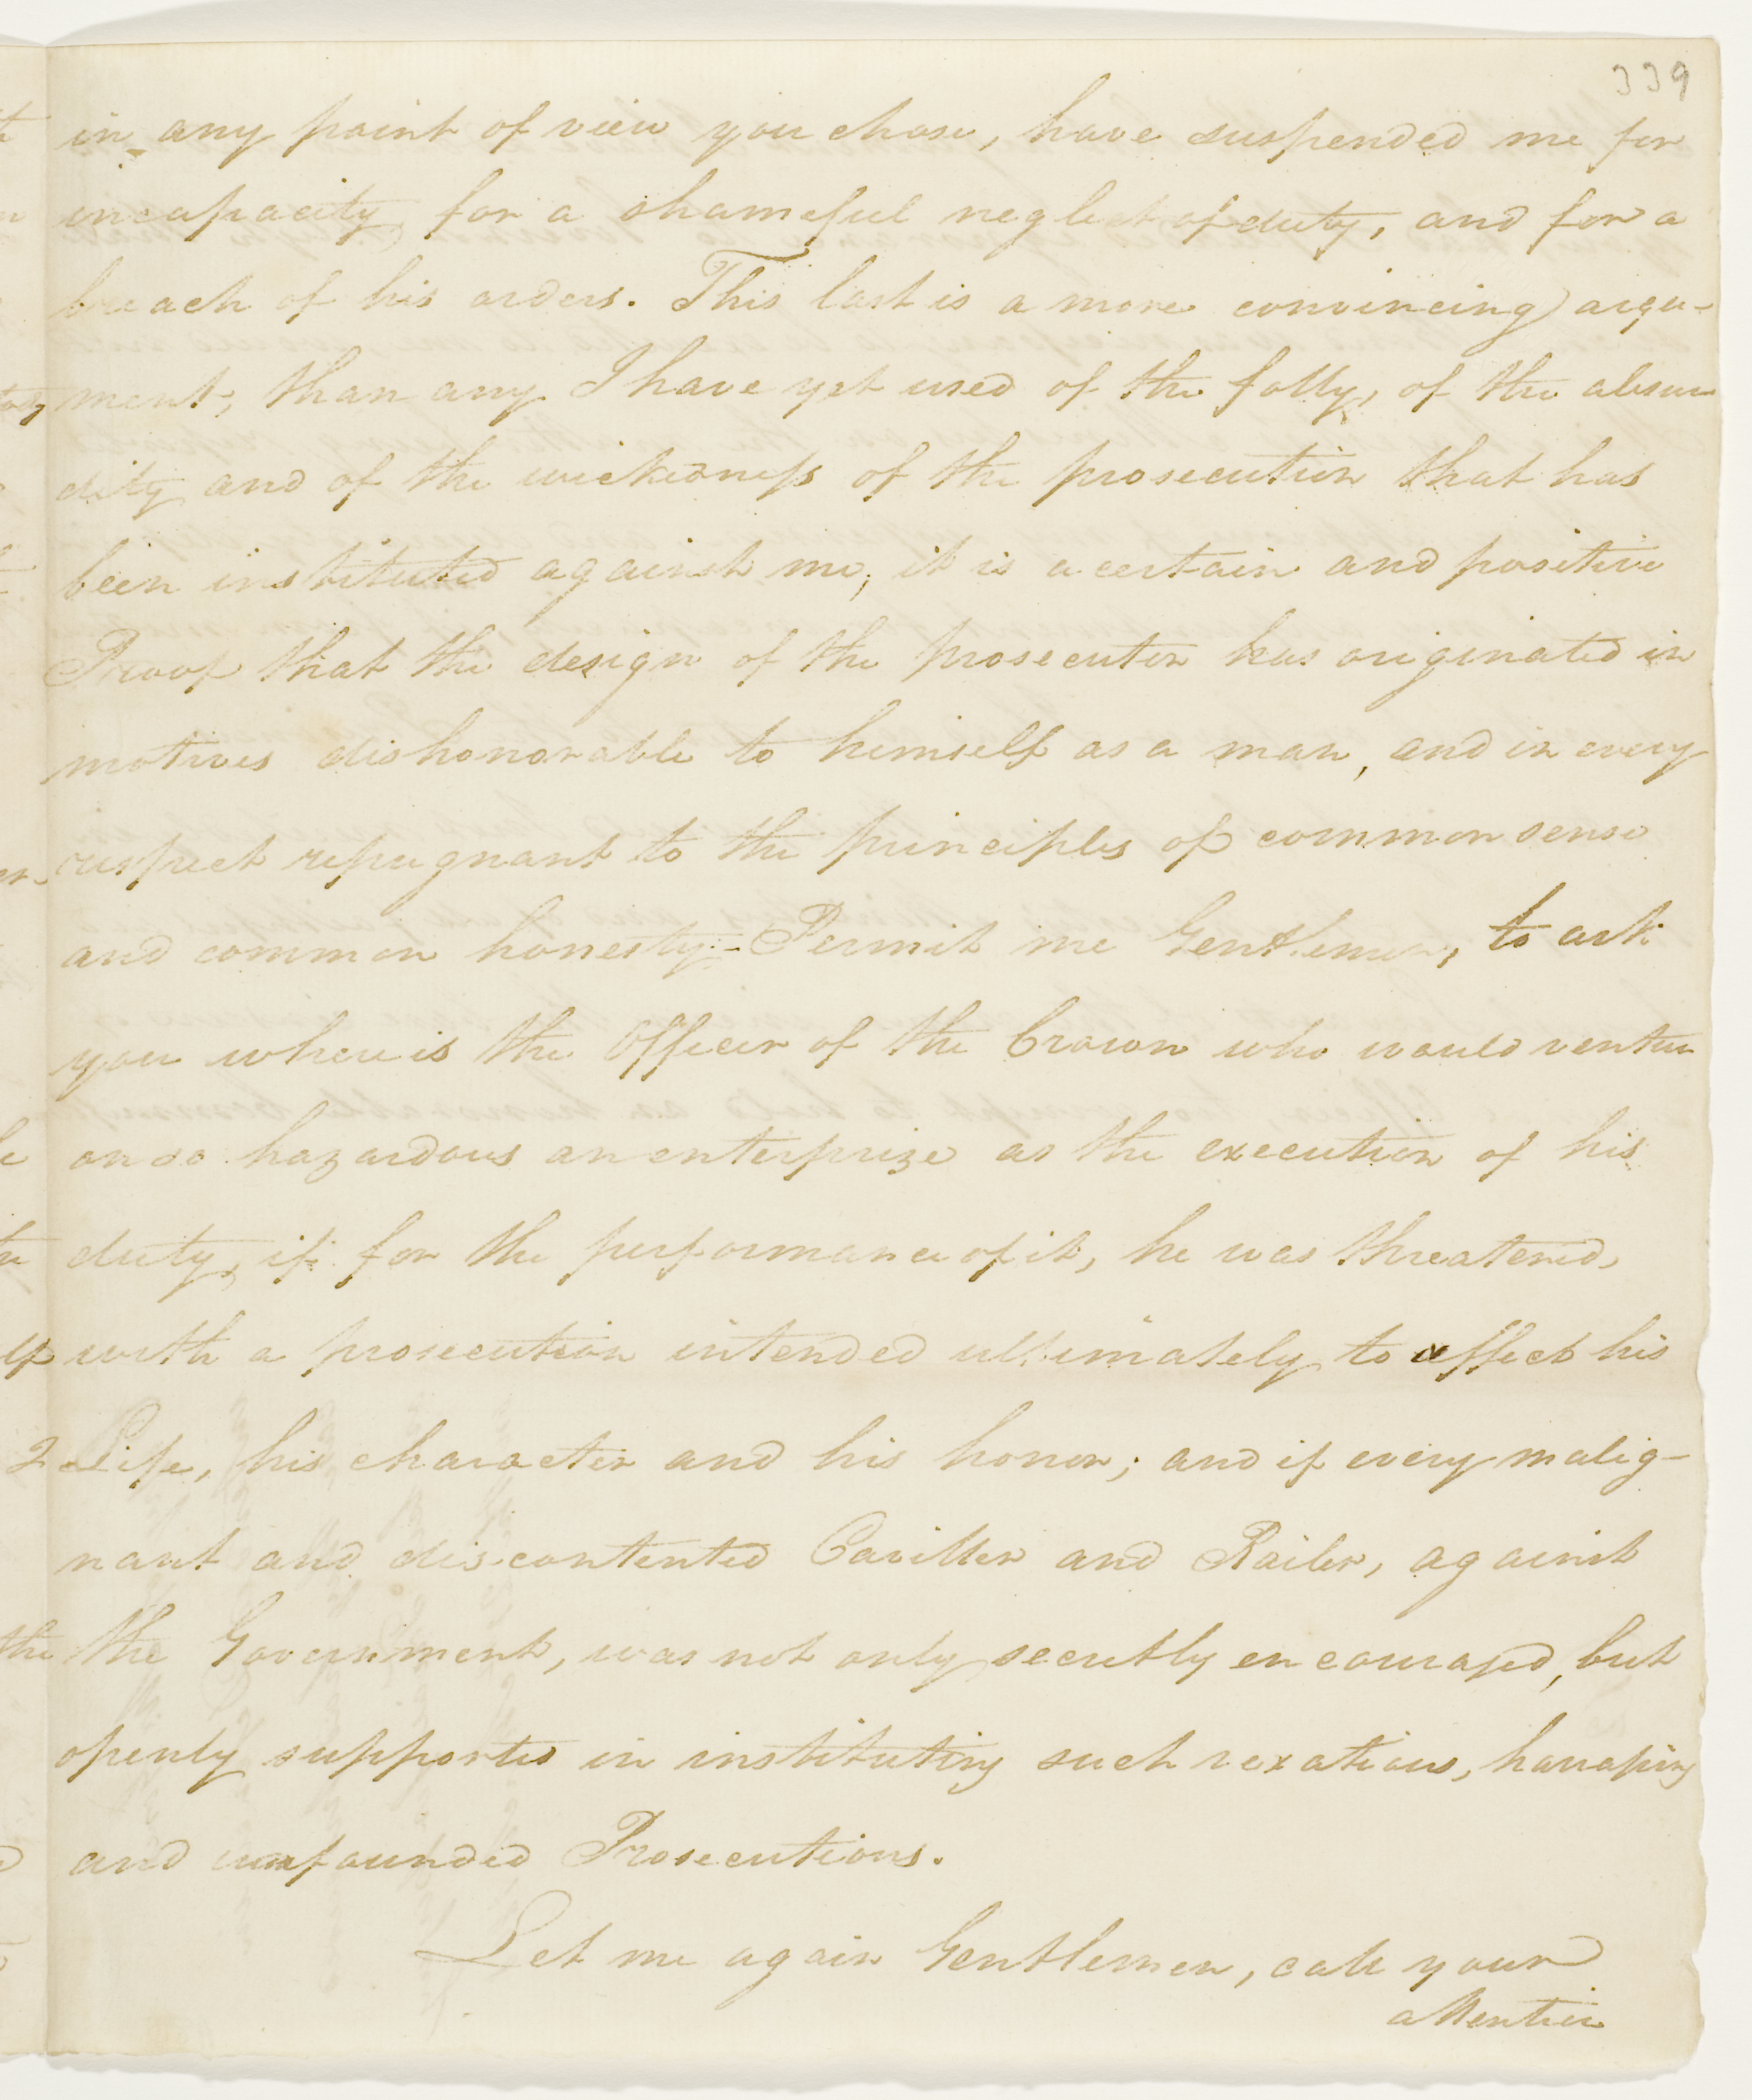 339
in any point of view you chose, have suspended me for
incapacity for a shameful neglect of duty, and for a
breach of his orders. This last is a more convincing argu-
ment, than any I have yet used of the folly, of the absur
dity and of the wickedness of the prosecution that has
been instituted against me; it is a certain and positive
Proof that the design of the prosecutor has originated in
motives dishonorable to himself as a man, and in every
respect repugnant to the principles of common sense
and common honesty - Permit me Gentlemen, to ask
you where is the Officer of the Crown who would venture
on so hazardous an enterprize as the execution of his
duty, if for the performance of it, he was threatened,
with a prosecution intended ultimately to affect his
Life, his character and his honor; and if every malig-
nant and discontented Caviller and Railer, against
the Government, was not only secretly encouraged, but
openly supported in instituting such vexatious, harrassing
and unfounded Prosecutions.
Let me again Gentlemen, call your
attention